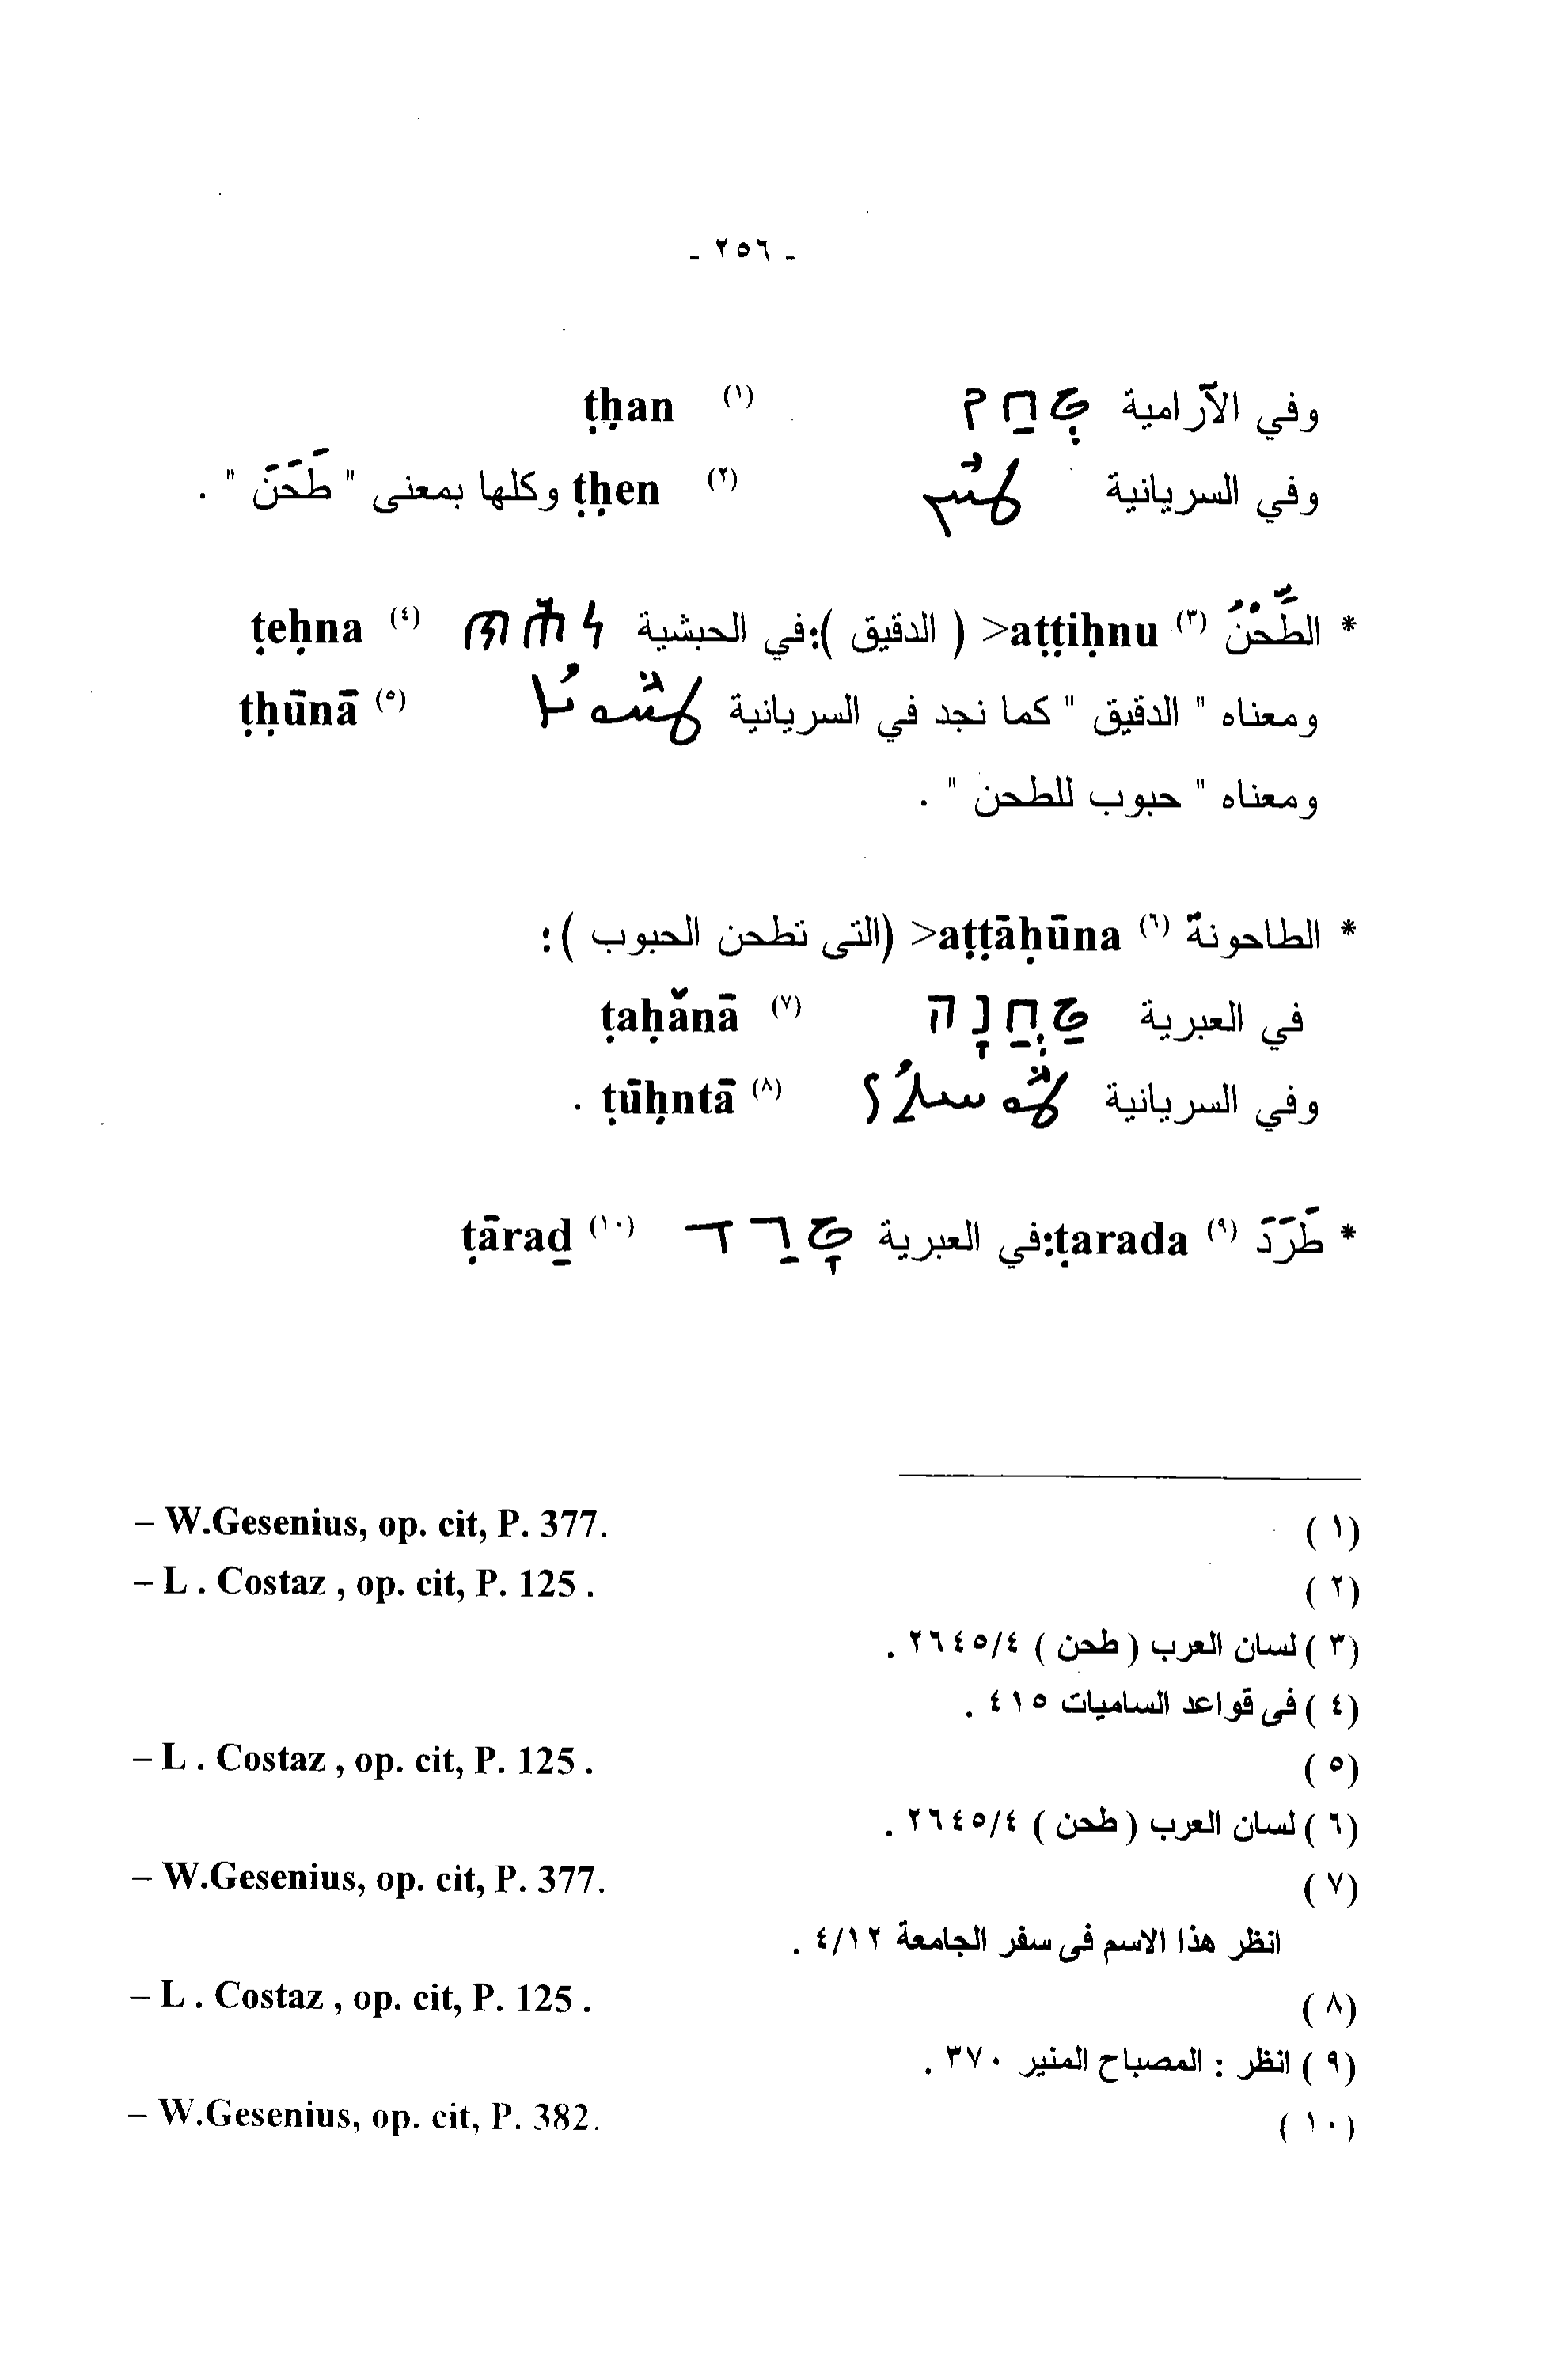 - ٢٥٦ -
وفي الآرامية טְחַן (١) ṭḥan
وفي السريانية ܛܚܢ (٢) ṭḥen وكلها بمعنى " طَحَنَ " .
* الطِّحْنُ (٣) aṭṭiḥnu< ( الدقيق ):في الحبشية (٤) ṭeḥna
ومعناه " الدقيق " كما نجد في السريانية ܛܚܘܢܐ (٥) ṭḥūnā
ومعناه " حبوب للطحن " .
* الطاحونة (٦) aṭṭāḥūna< (التى تطحن الحبوب ):
في العبرية טַחֲנָה (٧) ṭaḥǎnā
وفي السريانية ܛܘܚܢܬܐ (٨) ṭūḥntā .
* طَرَدَ (٩) ṭarada:في العبرية טָרַד (١٠) ṭāraḏ
(١) – W.Gesenius, op. cit, P. 377.
(٢) – L . Costaz , op. cit, P. 125 .
(٣) لسان العرب ( طحن ) ٢٦٤٥/٤ .
(٤) فى قواعد الساميات ٤١٥ .
(٥) – L . Costaz , op. cit, P. 125 .
(٦) لسان العرب ( طحن ) ٢٦٤٥/٤ .
(٧) – W.Gesenius, op. cit, P. 377.
انظر هذا الاسم فى سفر الجامعة ٤/١٢ .
(٨) – L . Costaz , op. cit, P. 125 .
(٩) انظر : المصباح المنير ٣٧٠ .
(١٠) – W.Gesenius, op. cit, P. 382.